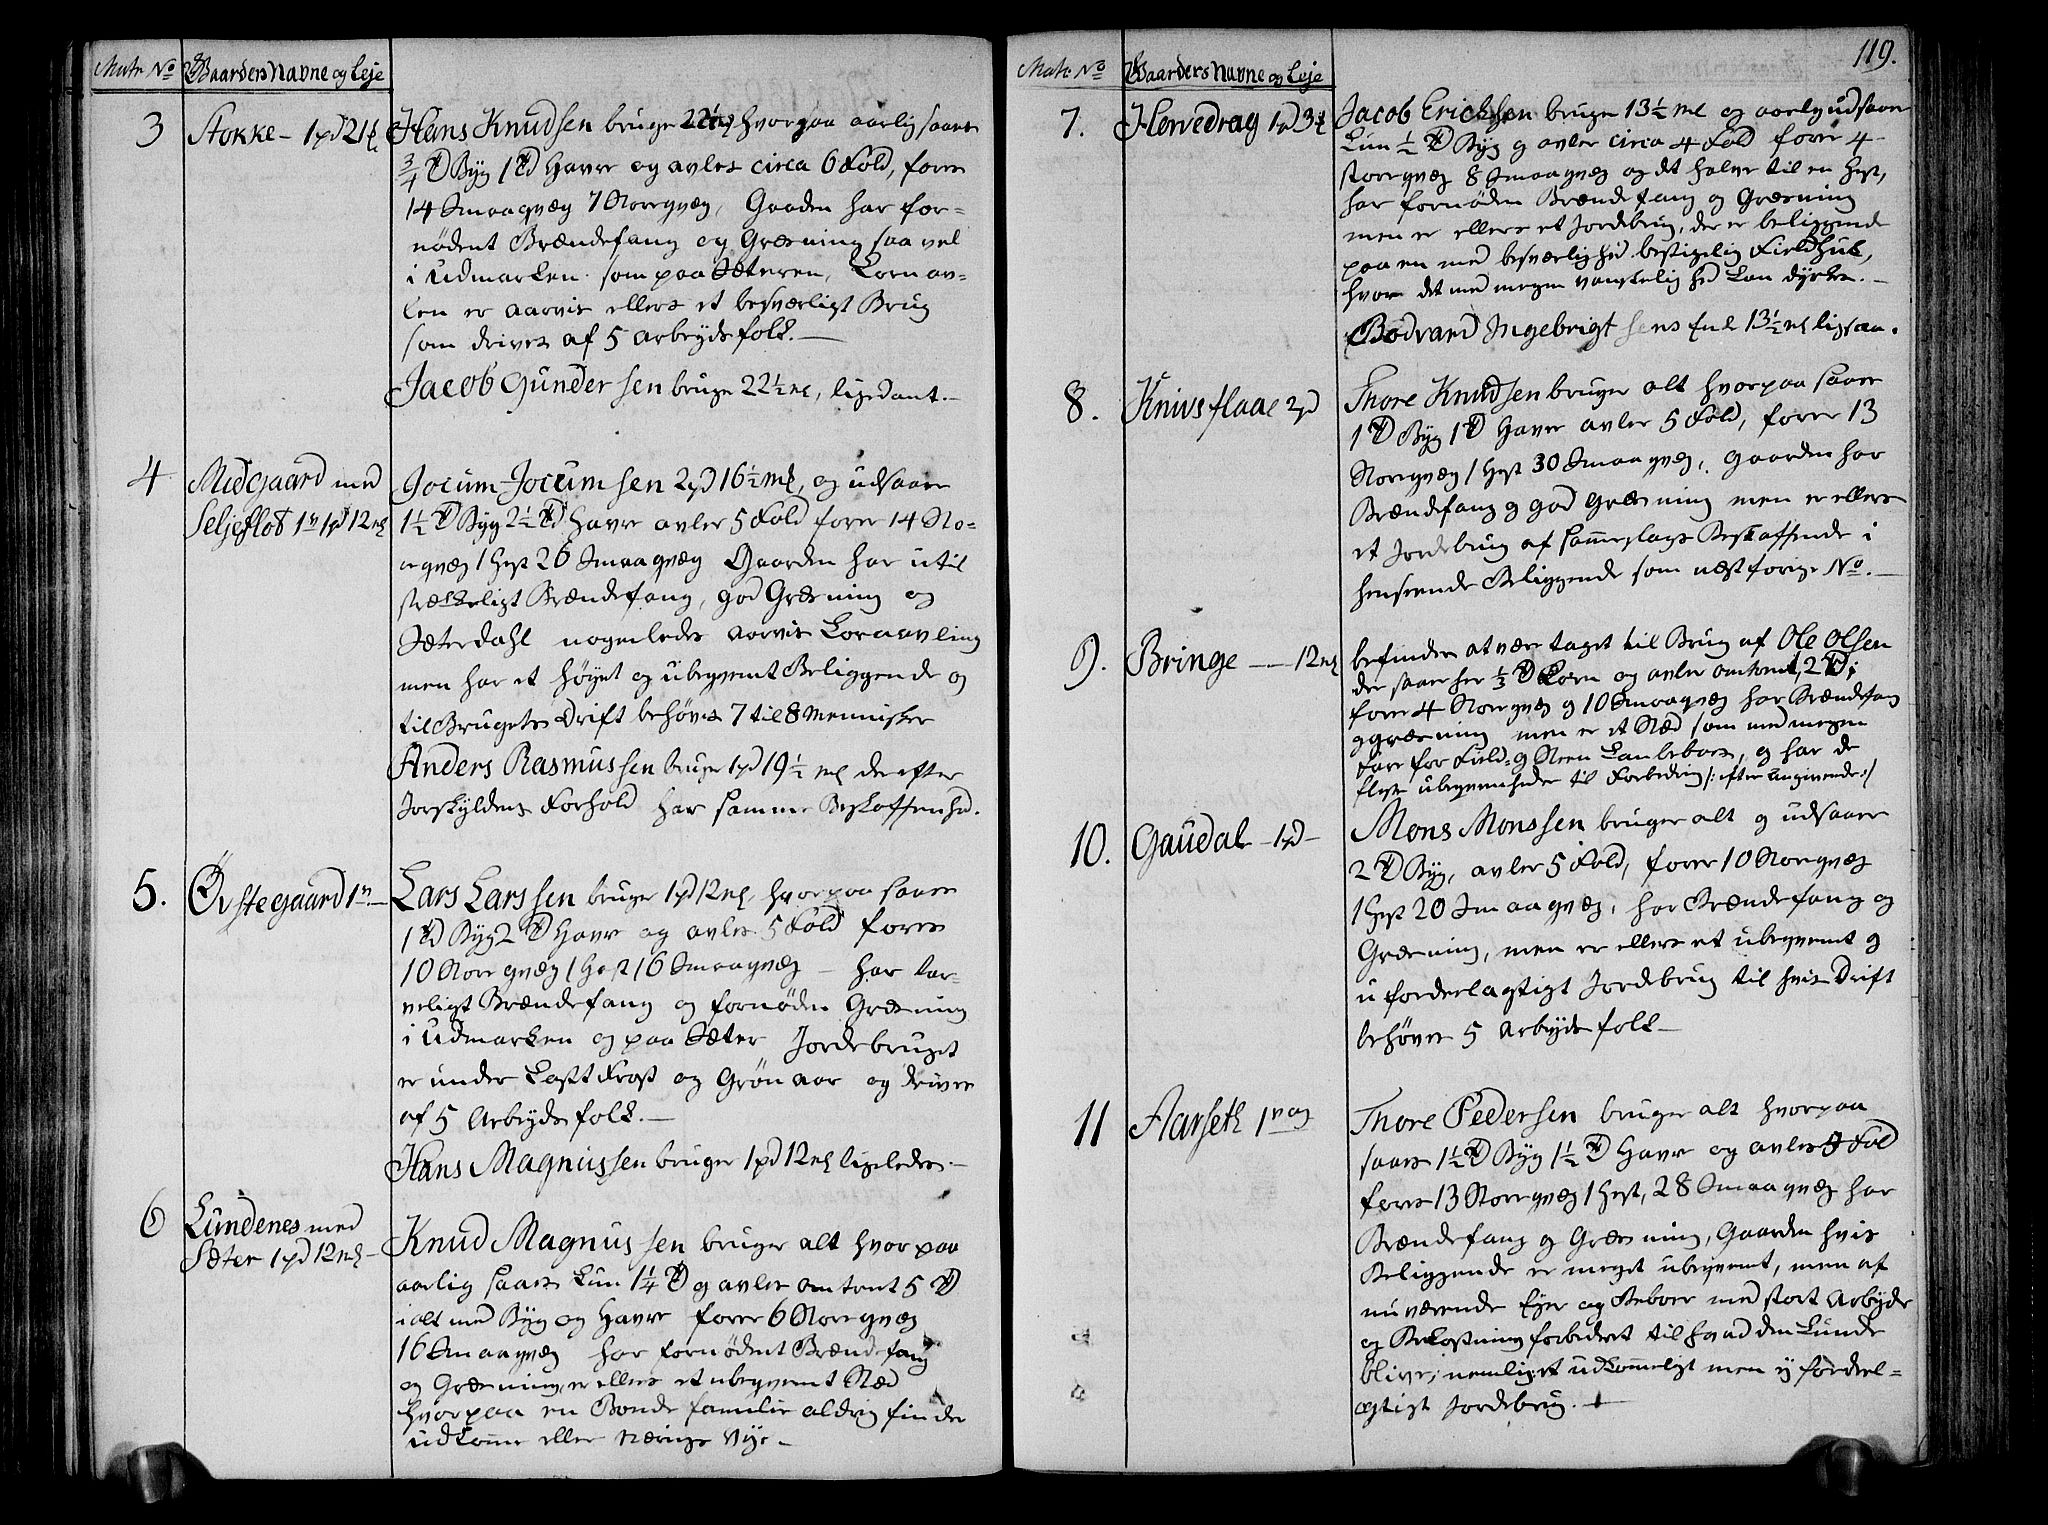 Matr No Gaarders Navne og Leje
3 Stokke – 1 pd 21 ℔
Hans Knudsen bruger 22½ hvorpaa aarlig saaes
¾ Td Byg 1 Td Havre og avles circa 6 Fold, föres
14 Smaaqvæg 7 Storeqvæg, Gaarden har for=
nödent Brændefang og Græsning saavel
i Udmarken som paa Sæteren, Kornav=
len er aarvis ellers et besværligt Brug
som drives af 5 arbeydsfolk.—
Jacob Gundersen bruger 22½ ml, ligedant.—
4 Midgaard med
Seljeflot 1 v 1 pd 12 ml
Jocum Jocumsen 2 pd 16½ ml, og udsaaer
1½ Td Byg 2½ Td Havre avler 5 Fold forer 14 Sto=
reqvæg 1 Hest 26 Smaaqvæg Gaarden har util
strækkeligt Brændefang, god Græsning og
Sæterdahl nogenledes aarvis Kornavling
men har et höyst og ubeqvemt Beliggende og
til Brugets Drift behöves 7 til 8 Mennisker
Anders Rasmussen bruger 1 pd 19½ ml der efter
Jorskyldens Forhold har samme Beskaffenhd.
5. Övstegaard 1 v.—
Lars Larssen bruger 1 pd 12 ml, hvorpaa saaes
1 Td Byg 2 Td Havre og avles 5 Fold forer
10 Storeqvæg 1 Hest 16 Smaaqvæg – har tar=
veligt Brændefang og fornöden Græsning
i Udmarken og paa Sæter Jordebruget
er under Kast Frost og Grön aar og drives
af 5 Arbeydsfolk.—
Hans Magnussen bruger 1 pd 12 ml ligeledes.—
6 Lundenes med
Sæter 1 pd 12 ml –
Knud Magnussen bruger alt hvorpaa
aarlig saaes kun 1¼ Td og avles omtrent 5 Td
i alt med Byg og Havre forer 6 Storeqvæg
16 Smaaqvæg har fornödent Brændefang
og Græsning, er ellers et ubeqvemt Stæd
hvorpaa en Bonde familie aldrig finder
udkomme eller Nærings Veje.—
119.
Matr No Gaarders Navne og Leje
7. Hervedrag 1 pd 3 ℔
Jacob Ericksen bruger 13½ ml og aarlig udsaaer
kun ½ Td Byg og avler circa 4 Fold forer 4
storeqvæg 8 Smaaqvæg og det halve til en Hest,
har fornöden Brændefang og Græsning
men er ellers et Jordebrug, der er beliggende
paa en med besværlighed bestigelig Fieldhule,
hvor det med megen vanskelighed kan dyrkes.—
Bodvard Ingebrigtsens Enke 13½ ml ligesaa.
8. Knivsflaae 2 pd
Thore Knudsen bruger alt hvorpaa saaes
1 Td Byg 1 Td Havre avler 5 Fold, forer 13
Storeqvæg 1 Hest 30 Smaaqvæg, Gaarden har
Brændefang og god Græsning men er ellers
et Jordebrug af sammeslags Beskaffende i
henseende Beliggende som næstforige No.—
9. Bringe — 12 ml
befindes at være taget til Brug af Ole Olsen
der saaer her ⅓ Td Korn og avler omtrent 2 Td;
forer 4 Storeqvæg og 10 Smaaqvæg har Brændefang
og græsning men er et Stæd som med megen
Fare for Field= og Steen kan beboes, og har de
fleste ubeqvemheder til Forbedring /: efter Angivende :/
10. Gaudal – 1 pd –
Mons Monssen bruger alt og udsaaer
2 Td Byg, avler 5 Fold, forer 10 Storeqvæg
1 Hest 20 Smaaqvæg, har Brændefang og
Græsning, men er ellers et ubeqvemt og
ufordelagtigt Jordebrug til hvis Drift
behöves 5 Arbeydsfolk —
11 Aarseth 1 v og
Thore Pedersen bruger alt hvorpaa
saaes 1½ Td Byg 1½ Td Havre og avles Fold
forer 13 Storeqvæg 1 Hest, 28 Smaaqvæg har
Brændefang og Græsning, Gaarden hvis
Beliggende er meget ubeqvemt, men af
nuværende Ejer og Beboer med stort Arbeyde
og Bekostning forbedret til hvad den kunde
blive, nemlig et udkommeligt men ej fordeel=
agtigt Jordebrug.—